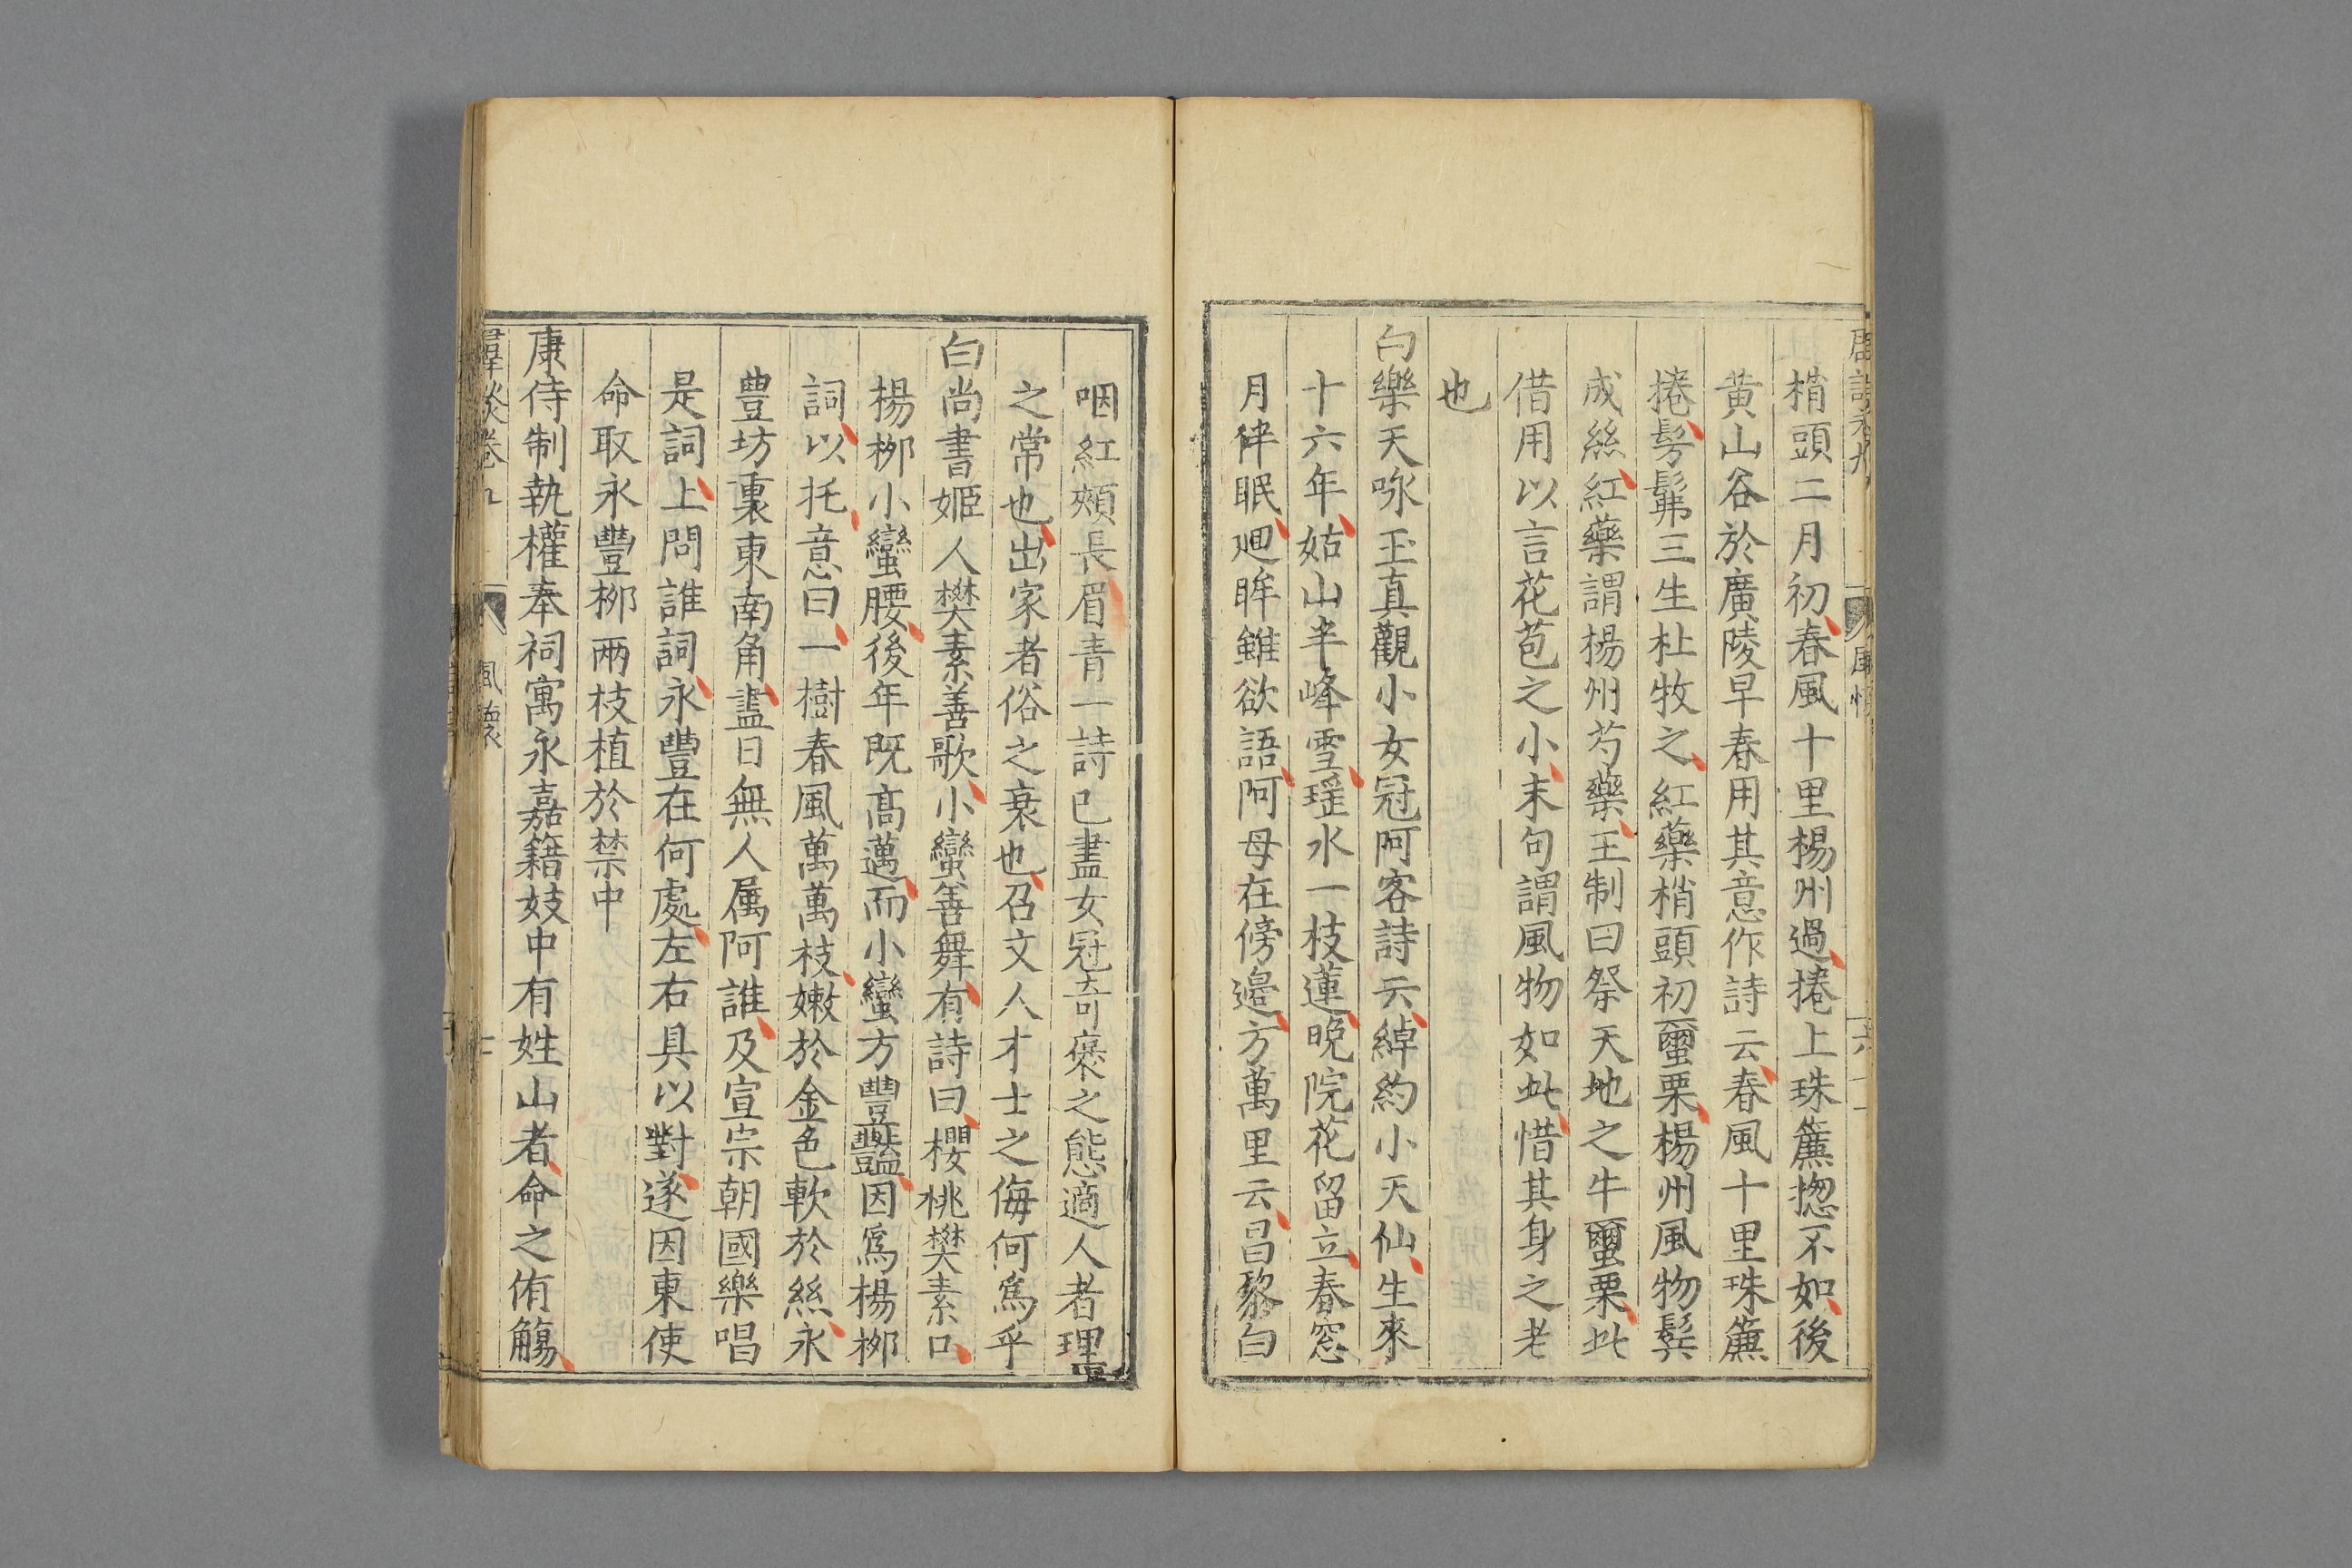 梢頭二月初春風十里楊州過捲上珠簾揔不如後
黃山谷於廣陵早春用其意作詩云春風十里珠簾
捲髣髴三生杜牧之紅藥梢頭初䘪栗楊州風物鬂
成絲紅藥謂楊州芍藥王制曰祭天地之牛䘪栗此
借用以言花苞之小末句謂風物如此惜其身之老
也
白樂天咏玉真觀小女冠阿客詩云綽約小天仙生來
十六年姑山半峰雪瑤水一枝蓮晚院花留立春窓
月伴眠廻眸雖欲語阿母在傍邊方萬里云昌黎白
咽紅頰長眉青一詩已盡女冠奇褒之態適人者理
之常也出家者俗之衰也召文人才士之侮何爲乎
白尚書姬人樊素善歌小蠻善舞有詩曰櫻桃樊素口
楊柳小蠻腰後年既高邁而小蠻方豐艷因爲楊柳
詞以托意曰一樹春風萬萬枝嫩於金色軟於絲永
豊坊裏東南角盡日無人属阿誰及宣宗朝國樂唱
是詞上問誰詞永豐在何處左右具以對遂因東使
命取永豐柳兩枝植於禁中
康侍制執權奉祠寓永嘉籍妓中有姓山者命之侑觴
卷九
風懷